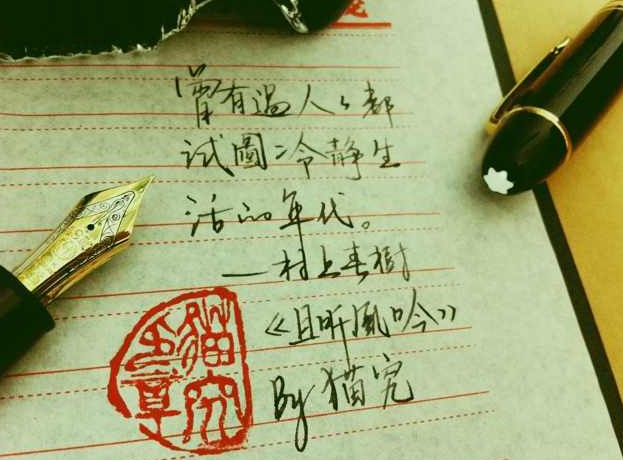 曾有過人々都
試圖冷静生
活的年代。
—村上春樹
《且听風吟》
By 猫
猫
之章